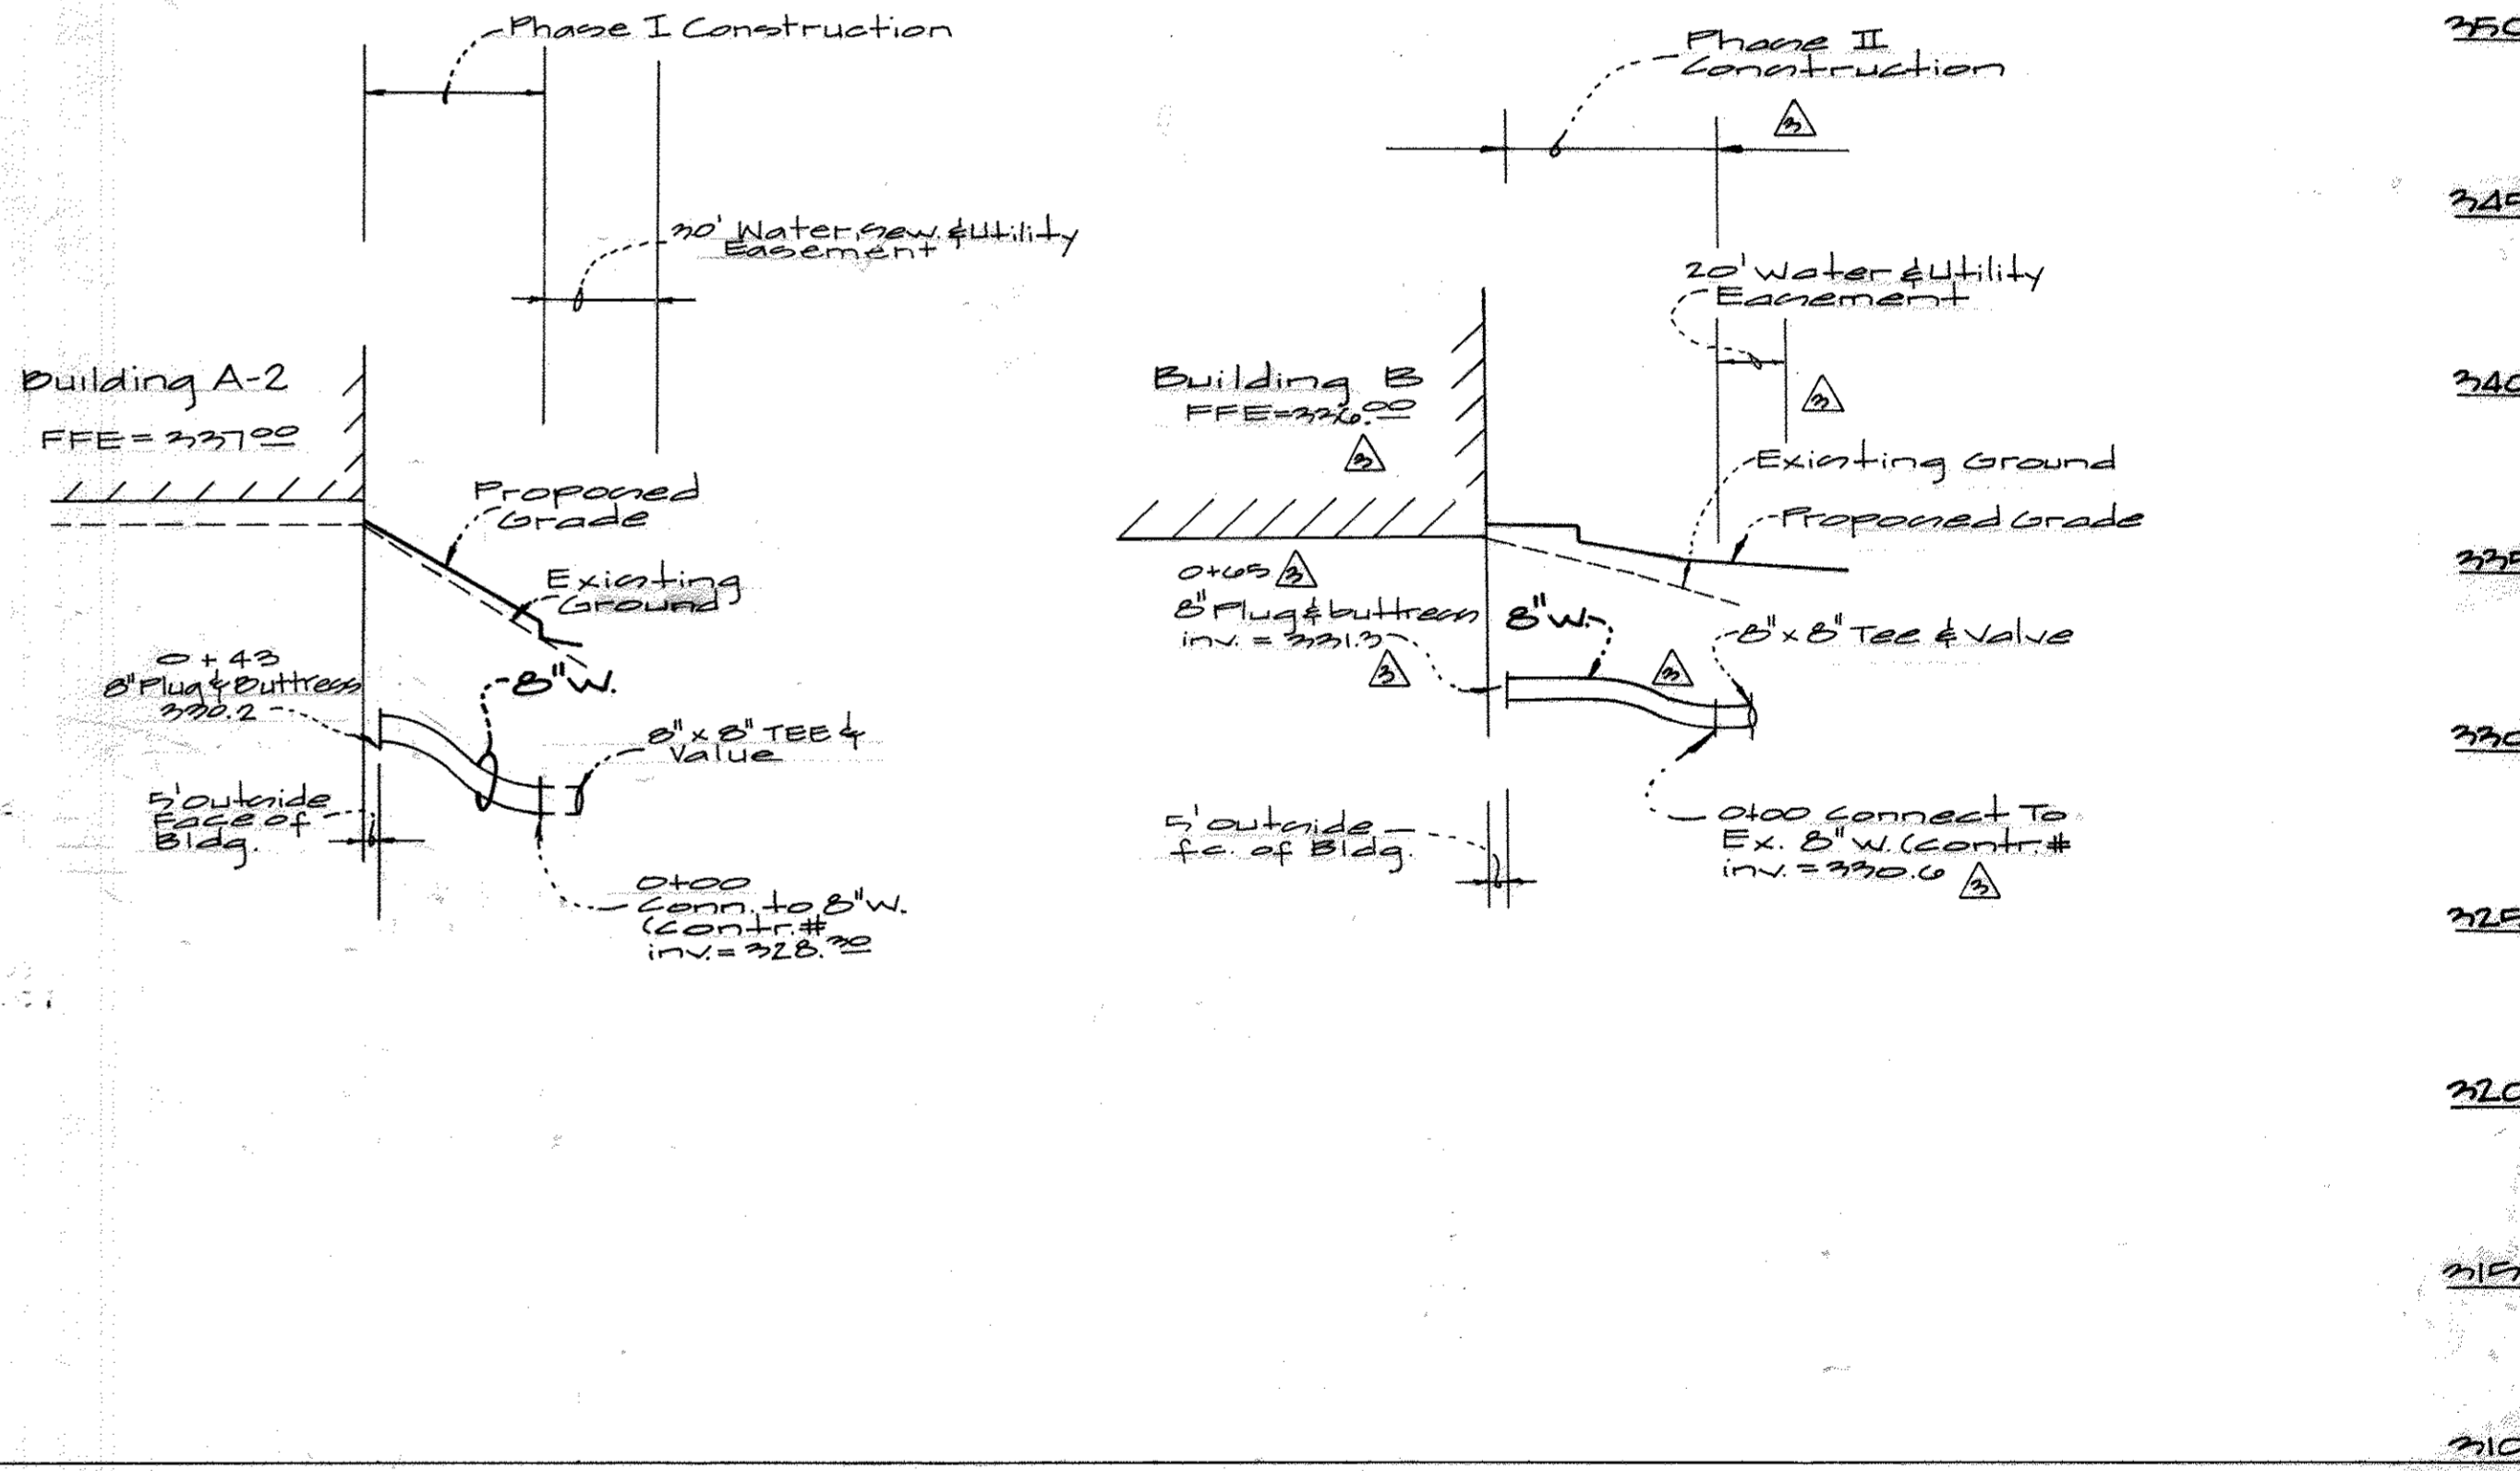 Phase I Construction
30' Water, Sew. & Utility
Easement
Building A-2
FFE = 337.00
Proposed
Grade
Existing
Ground
0+43
8" Plug & Buttress
330.2
8" W.
8" x 8" TEE &
Value
5' Outside
Face of
Bldg.
0+00
Conn. to 8" W.
(Contr. #
inv. = 328.30
Phase II
Construction
3
20' Water & Utility
Easement
3
Building B
FFE=336.00
3
Existing Ground
Proposed Grade
0+65 3
8" Plug & buttress
inv. = 331.3
3
8" W.
3
8" x 8" Tee & Valve
5' outside
fc. of Bldg.
0+00 Connect To
Ex. 8" W. (Contr. #
inv. = 330.6 3
350
345
340
335
330
325
320
315
310